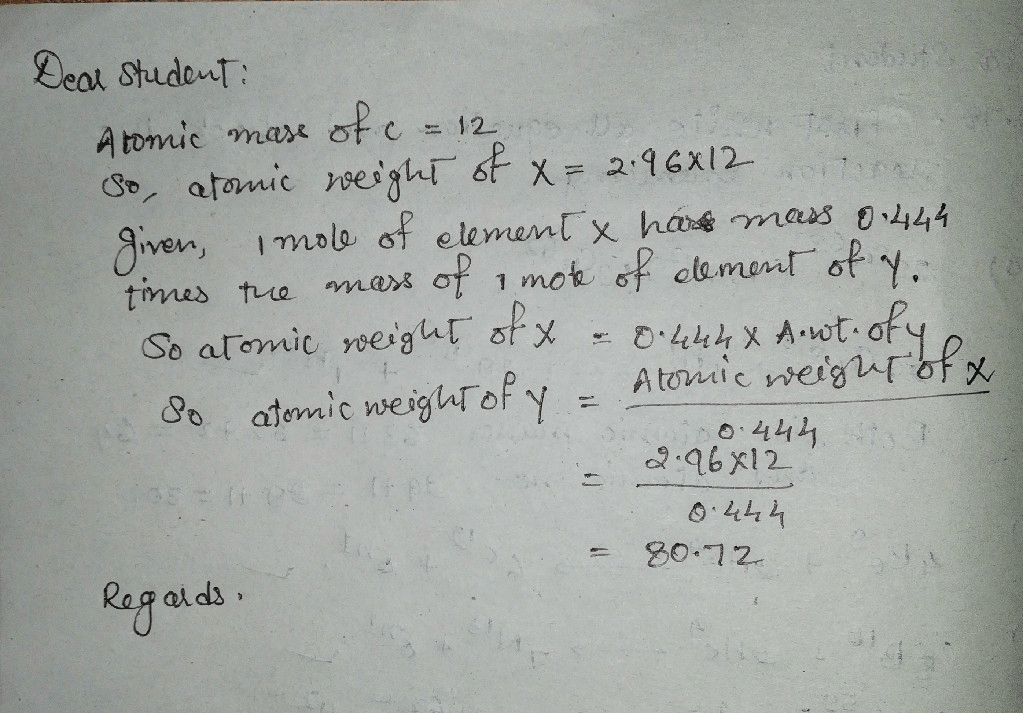 Dear Student:
Atomic mass of c = 12
So, atomic weight of X = 2.96x12
Given, 1 mole of element x has mass 0.444
times the mass of 1 mole of element of y.
So atomic weight of x = 0.444 x A.wt. of y
So atomic weight of y = Atomic weight of x
0.444
= 2.96x12
0.444
= 80.72
Regards.